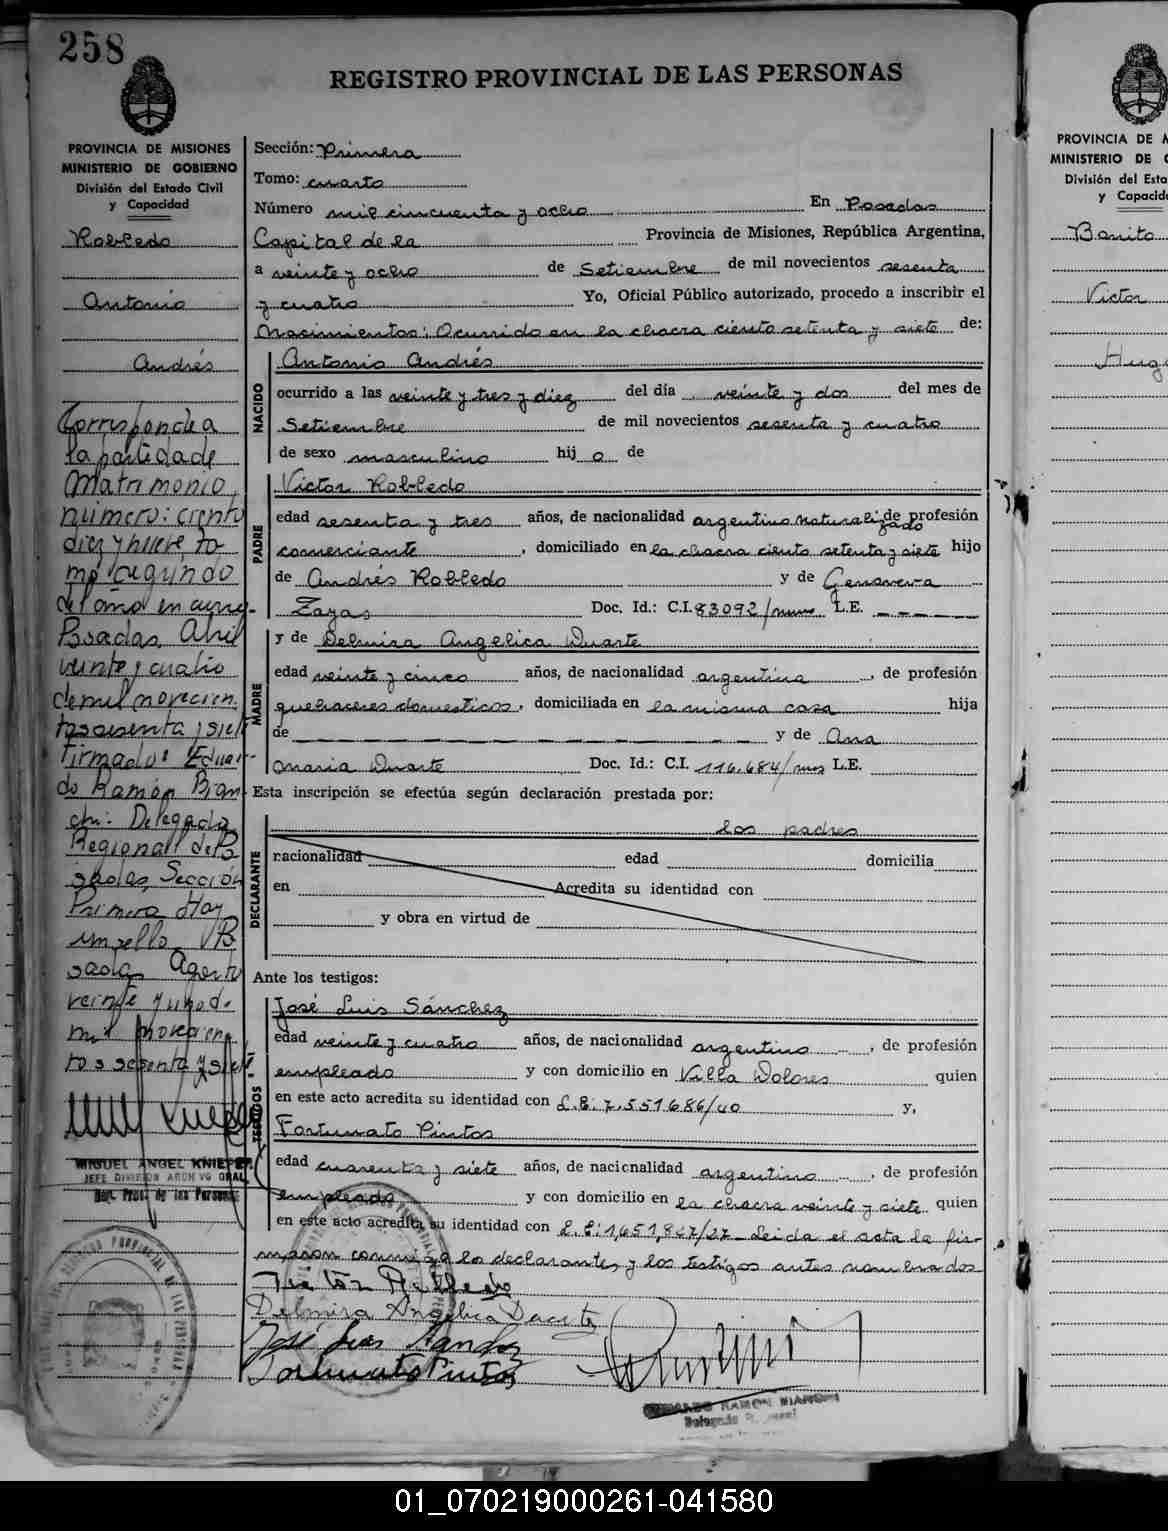 258
REGISTRO PROVINCIAL DE LAS PERSONAS
PROVINCIA DE MISIONES
MINISTERIO DE GOBIERNO
División del Estado Civil
y Capacidad
Robledo
Antonio
Andrés
Corresponde a
la partida de
Matrimonio,
número: ciento
diez y nueve, to-
mo segundo
del año en curso.
Posadas, Abril
veinte y cuatro
de mil novecien-
tos sesenta y siete
Firmado: Eduar-
do Ramón Bian-
chi: Delegado
Regional de Po
sadas, Sección
Primera Hay
un sello Po
sadas, Agosto
veinte y uno de
mil novecien
tos sesenta y siete
MIGUEL ANGEL KNIEPER
JEFE DIVISION ARCHIVO GRAL.
Reg. Prov. de las Personas
Sección: Primera
Tomo: cuarto
Número mil cincuenta y ocho En Posadas
Capital de la Provincia de Misiones, República Argentina,
a veinte y ocho de Setiembre de mil novecientos sesenta
y cuatro Yo, Oficial Público autorizado, procedo a inscribir el
Nacimientos: Ocurrido en la chacra ciento setenta y siete de:
NACIDO
Antonio Andrés
ocurrido a las veinte y tres y diez del día veinte y dos del mes de
Setiembre de mil novecientos sesenta y cuatro
de sexo masculino hijo de
PADRE
Victor Robledo
edad sesenta y tres años, de nacionalidad argentino naturalizado de profesión
comerciante, domiciliado en la chacra ciento setenta y siete hijo
de Andrés Robledo y de Genoveva
Zayas Doc. Id.: C.I. 83092/mnes L.E. — — — —
MADRE
y de Delmira Angelica Duarte
edad veinte y cinco años, de nacionalidad argentina, de profesión
quehaceres domesticos, domiciliada en la misma casa hija
de — — — — — — — — y de Ana
Maria Duarte Doc. Id.: C.I. 116.684/mnes L.E.
Esta inscripción se efectúa según declaración prestada por:
DECLARANTE
los padres
nacionalidad edad domicilia
en Acredita su identidad con
y obra en virtud de
Ante los testigos:
TESTIGOS
José Luis Sánchez
edad veinte y cuatro años, de nacionalidad argentino, de profesión
empleado y con domicilio en Villa Dolores quien
en este acto acredita su identidad con L.E: 7.551686/40 y,
Fortunato Pintos
edad cuarenta y siete años, de nacionalidad argentino, de profesión
empleado y con domicilio en la chacra veinte y siete quien
en este acto acredita su identidad con L.E: 1,651,827/27 Leida el acta la fir-
maron conmigo los declarantes y los testigos antes nombrados
Victor Robledo
Delmira Angelica Duarte
José Luis Sanchez
Fortunato Pintos
RAMON BIANCHI
PROVINCIA DE M
MINISTERIO DE G
División del Esta
y Capacida
Benito
Victor
Hug
01_070219000261-041580